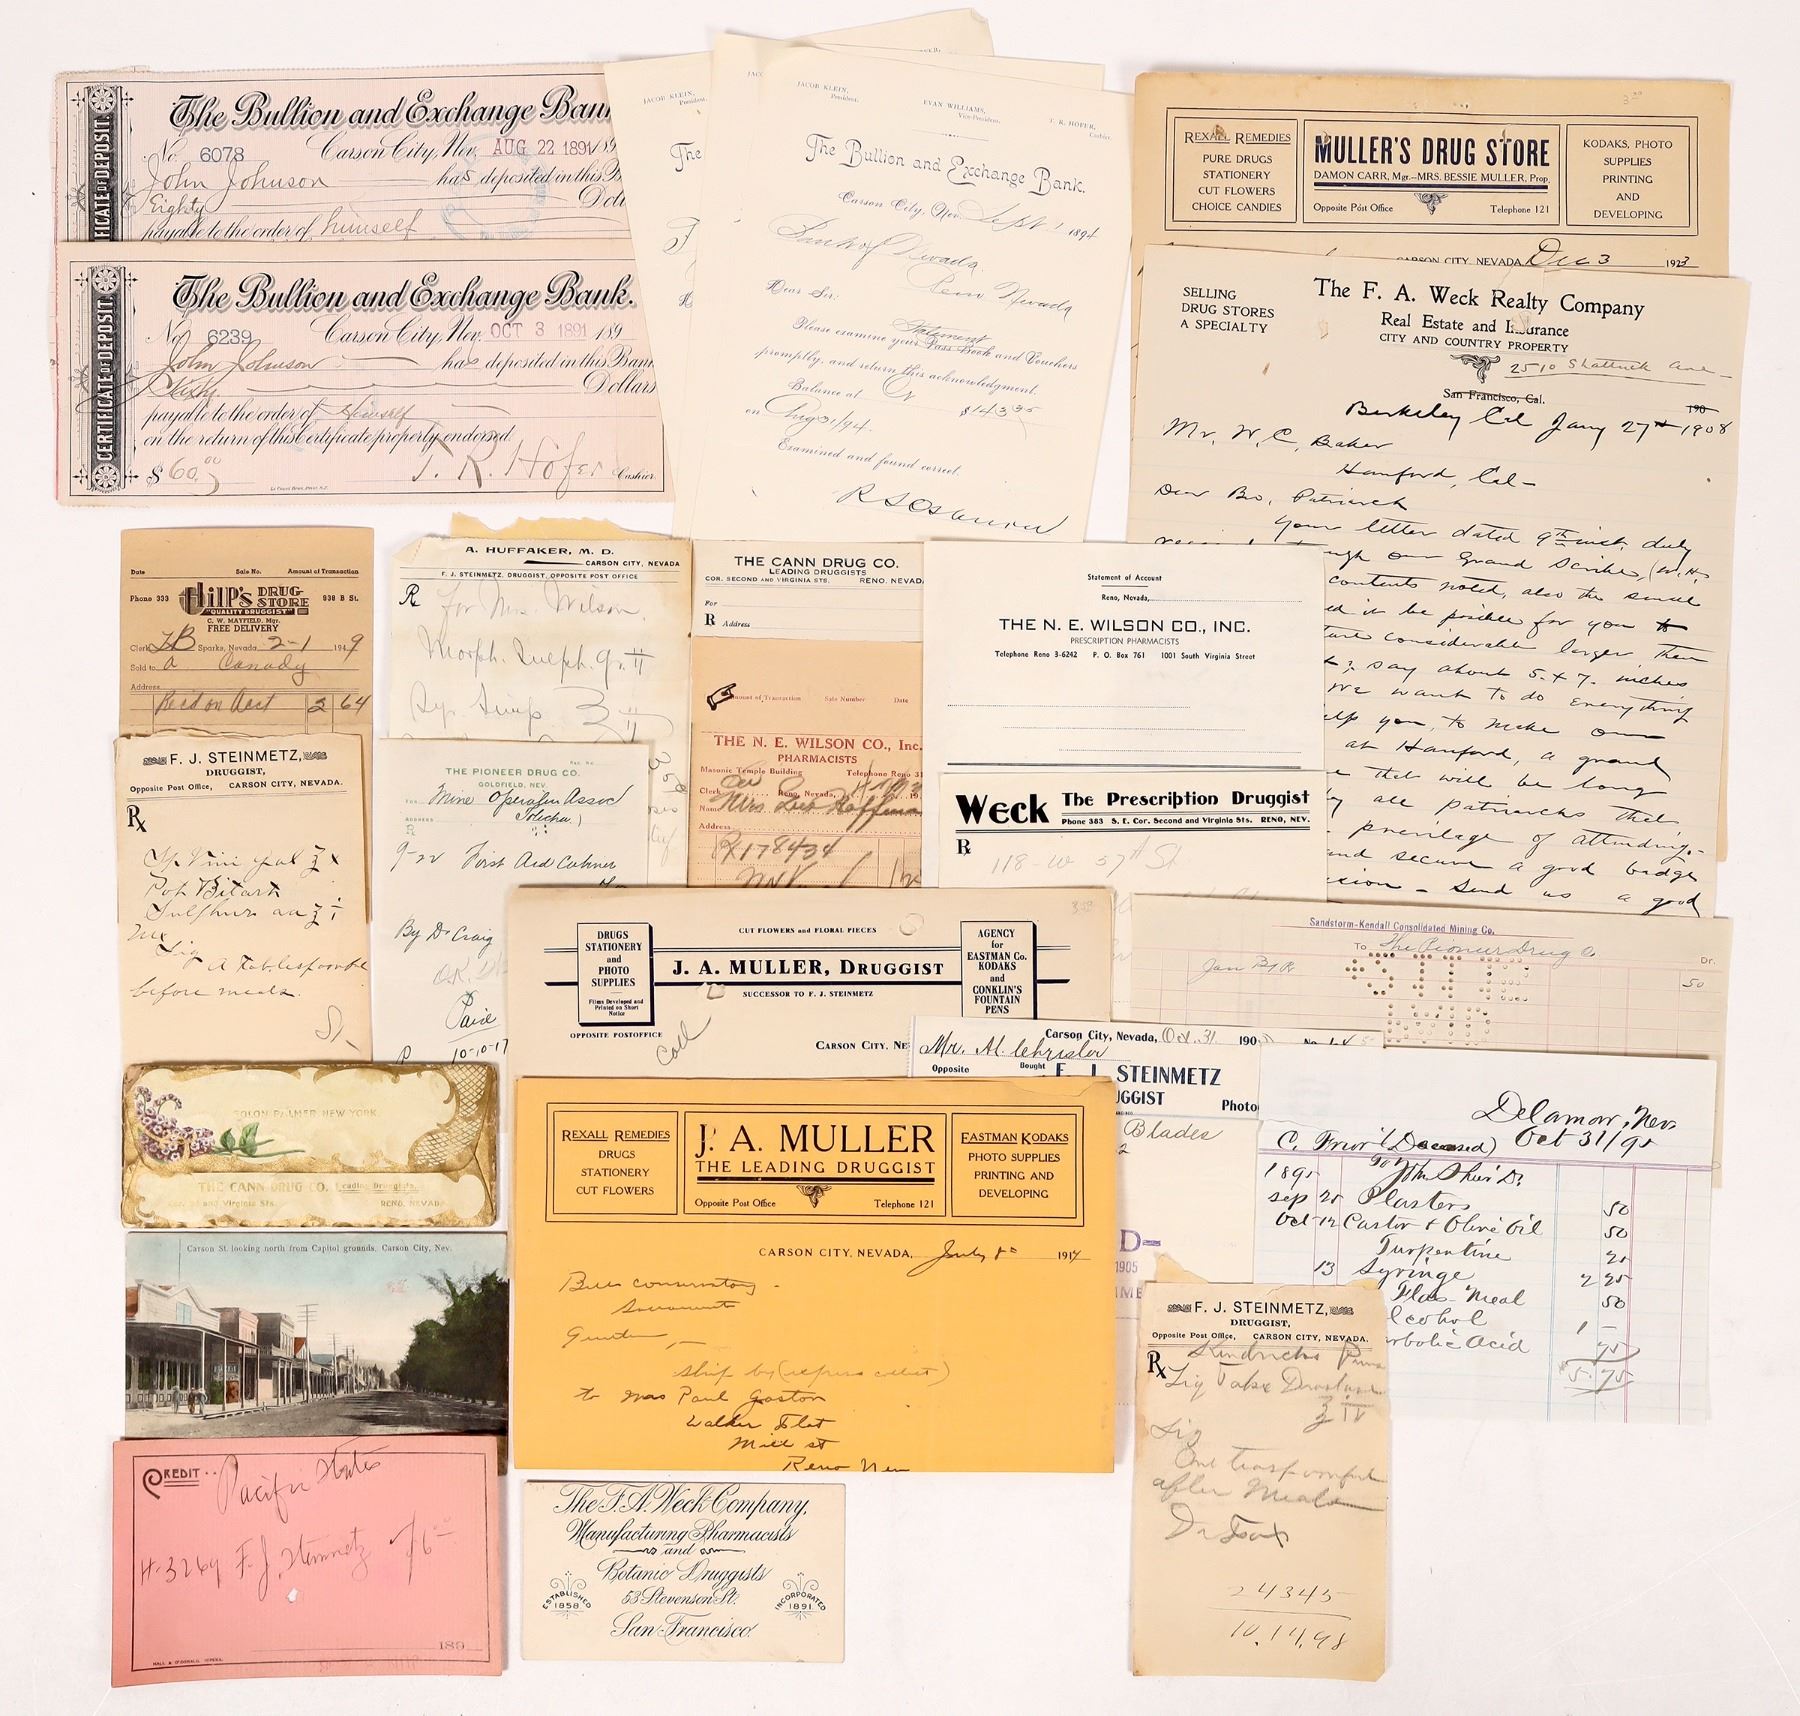 CERTIFICATE OF DEPOSIT.
The Bullion and Exchange Bank
No. 6078 Carson City, Nev. AUG 22 1891 189
John Johnson has deposited in this B
Eighty Doll
payable to the order of himself
CERTIFICATE OF DEPOSIT.
The Bullion and Exchange Bank.
No. 6239 Carson City, Nev. OCT 3 1891 189
John Johnson has deposited in this Bank
Sixty Dollars
payable to the order of himself
on the return of this Certificate properly endorsed.
$ 60.00 T. R. Hofer Cashier
JACOB KLEIN,
President.
The
JACOB KLEIN,
President.
EVAN WILLIAMS,
Vice-President.
T. R. HOFER,
Cashier.
The Bullion and Exchange Bank.
Carson City, Nev. Sept 1 1894
Bank of Nevada
Reno Nevada
Dear Sir:
Please examine your Statement Pass Book and Vouchers
promptly, and return this acknowledgment.
Balance at
on Aug 31/94. $143.35
Examined and found correct.
3.50
REXALL REMEDIES
PURE DRUGS
STATIONERY
CUT FLOWERS
CHOICE CANDIES
MULLER'S DRUG STORE
DAMON CARR, Mgr.—MRS. BESSIE MULLER, Prop.
Opposite Post Office Telephone 121
KODAKS, PHOTO
SUPPLIES
PRINTING
AND
DEVELOPING
CARSON CITY, NEVADA, Dec 3 1923
SELLING
DRUG STORES
A SPECIALTY
The F. A. Weck Realty Company
Real Estate and Insurance
CITY AND COUNTRY PROPERTY
2510 Shattuck Ave
San Francisco, Cal. 190
Berkeley Cal Jany 27th 1908
Mr. W. C. Baker
Hanford, Cal-
Dear Bro, Patriarch
Your letter dated 9th inst. duly
through our Grand Scribe, (W. H.
contents noted, also the small
it be posible for you to
considerable larger then
say about 5 + 7 inches
We want to do everything
help you, to make our
at Hanford, a grand
that will be long
by all patriarchs that
privilege of attending.-
and secure a good badge
Send us a good
Date Sale No. Amount of Transaction
Phone 333 Hilp's DRUG STORE 938 B St.
"QUALITY DRUGGIST"
C. W. MAYFIELD, Mgr.
FREE DELIVERY
Clerk Sparks, Nevada, 2-1 1949
Sold to A Canady
Address
Recd on Acct 2 64
A. HUFFAKER, M. D.
CARSON CITY, NEVADA
F. J. STEINMETZ, DRUGGIST, OPPOSITE POST OFFICE
℞ for Mrs. Wilson
Morph. Sulph. gr. ii
Syr. Simp.
THE CANN DRUG CO.
LEADING DRUGGISTS
COR. SECOND AND VIRGINIA STS. RENO, NEVADA
For
℞ Address
Amount of Transaction Sale Number Date
THE N. E. WILSON CO., Inc.
PHARMACISTS
Masonic Temple Building Telephone Reno 31
Clerk Reno, Nevada,
Name Mrs. Hoffman
Address
℞ 178434
Statement of Account
Reno, Nevada,
THE N. E. WILSON CO., INC.
PRESCRIPTION PHARMACISTS
Telephone Reno 3-6242 P. O. Box 761 1001 South Virginia Street
Weck The Prescription Druggist
Phone 383 S. E. Cor. Second and Virginia Sts. RENO, NEV.
℞ 118-W 57th St
F. J. STEINMETZ,
DRUGGIST,
Opposite Post Office, CARSON CITY, NEVADA.
℞
Pot Bitart
Sulphur
Sig
A tablespoonful
before meals.
St-
THE PIONEER DRUG CO.
GOLDFIELD, NEV.
For Mine Operators Assoc
ADDRESS
℞
9-22 First Aid Cabinet
By Dr Craig
O.K.
Paid
10-10-17
3.50
DRUGS
STATIONERY
and
PHOTO
SUPPLIES
Films Developed and
Printed on Short
Notice
CUT FLOWERS and FLORAL PIECES
J. A. MULLER, DRUGGIST
SUCCESSOR TO F. J. STEINMETZ
AGENCY
for
EASTMAN Co.
KODAKS
and
CONKLIN'S
FOUNTAIN
PENS
OPPOSITE POSTOFFICE
CARSON CITY, NE
Sandstorm-Kendall Consolidated Mining Co.
To The Pioneer Drug Co. Dr.
Jan 50
Carson City, Nevada, Oct. 31 190 No.
Mr. M. Chrisler
Opposite Bought F. J. STEINMETZ
UGGIST Photo
Blades
2
1905
Delamar, Nev
Oct 31/95
C. Prior (Deceased)
To John Shier Dr.
1895
Sep 25 Plasters 50
Oct 12 Castor & Olive Oil 50
Turpentine 25
13 Syringe 2 25
Flax-Meal 50
lcohol 1 –
arbolic Acid 75
$5.75
SOLON PALMER NEW YORK.
THE CANN DRUG CO. Leading Druggists,
Cor. 2d and Virginia Sts. RENO, NEVADA
Carson St. looking north from Capitol grounds, Carson City, Nev.
REXALL REMEDIES
DRUGS
STATIONERY
CUT FLOWERS
J. A. MULLER
THE LEADING DRUGGIST
Opposite Post Office Telephone 121
EASTMAN KODAKS
PHOTO SUPPLIES
PRINTING AND
DEVELOPING
CARSON CITY, NEVADA, July 8th 1914
Bells Conservatory
Sacramento
Gentlemen,-
Ship by (express collect)
to Mrs Paul Gaston
Walker Flat
Mill st
Reno Nev
F. J. STEINMETZ,
DRUGGIST,
Opposite Post Office, CARSON CITY, NEVADA.
℞
Sig
One teaspoonful
after Meals
24345
10.14.98
CREDIT..
Pacific States
H-3269 F. J. Steinmetz
189
The F. A. Weck Company,
Manufacturing Pharmacists
and
Botanic Druggists
53 Stevenson St.
San Francisco.
ESTABLISHED
1858
INCORPORATED
1891.